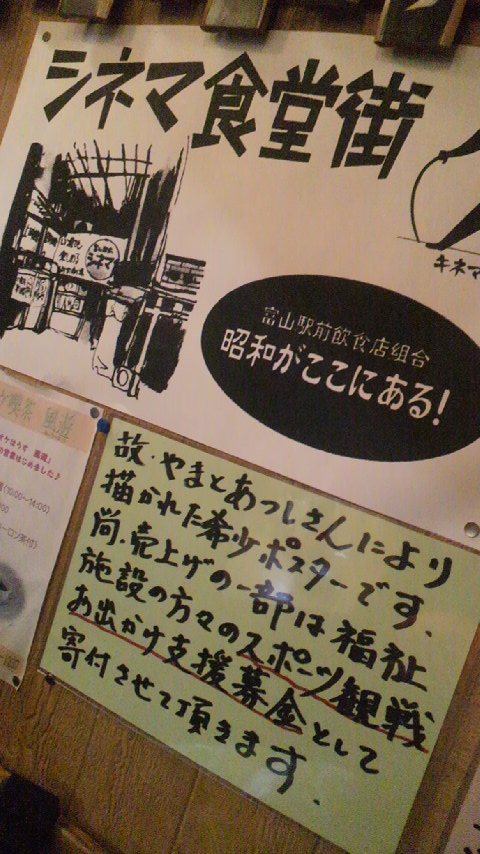 シネマ食堂街
シネマ
キネマ
富山駅前飲食店組合
昭和がここにある!
故・やまとあつしさんにより
描かれた希少ポスターです、
尚、売上げの一部は福祉
施設の方々のスポーツ観戦
お出かけ支援募金として
寄付させて頂きます、
喫茶 風遊
の営業はじめました♪
(10:00〜14:00)